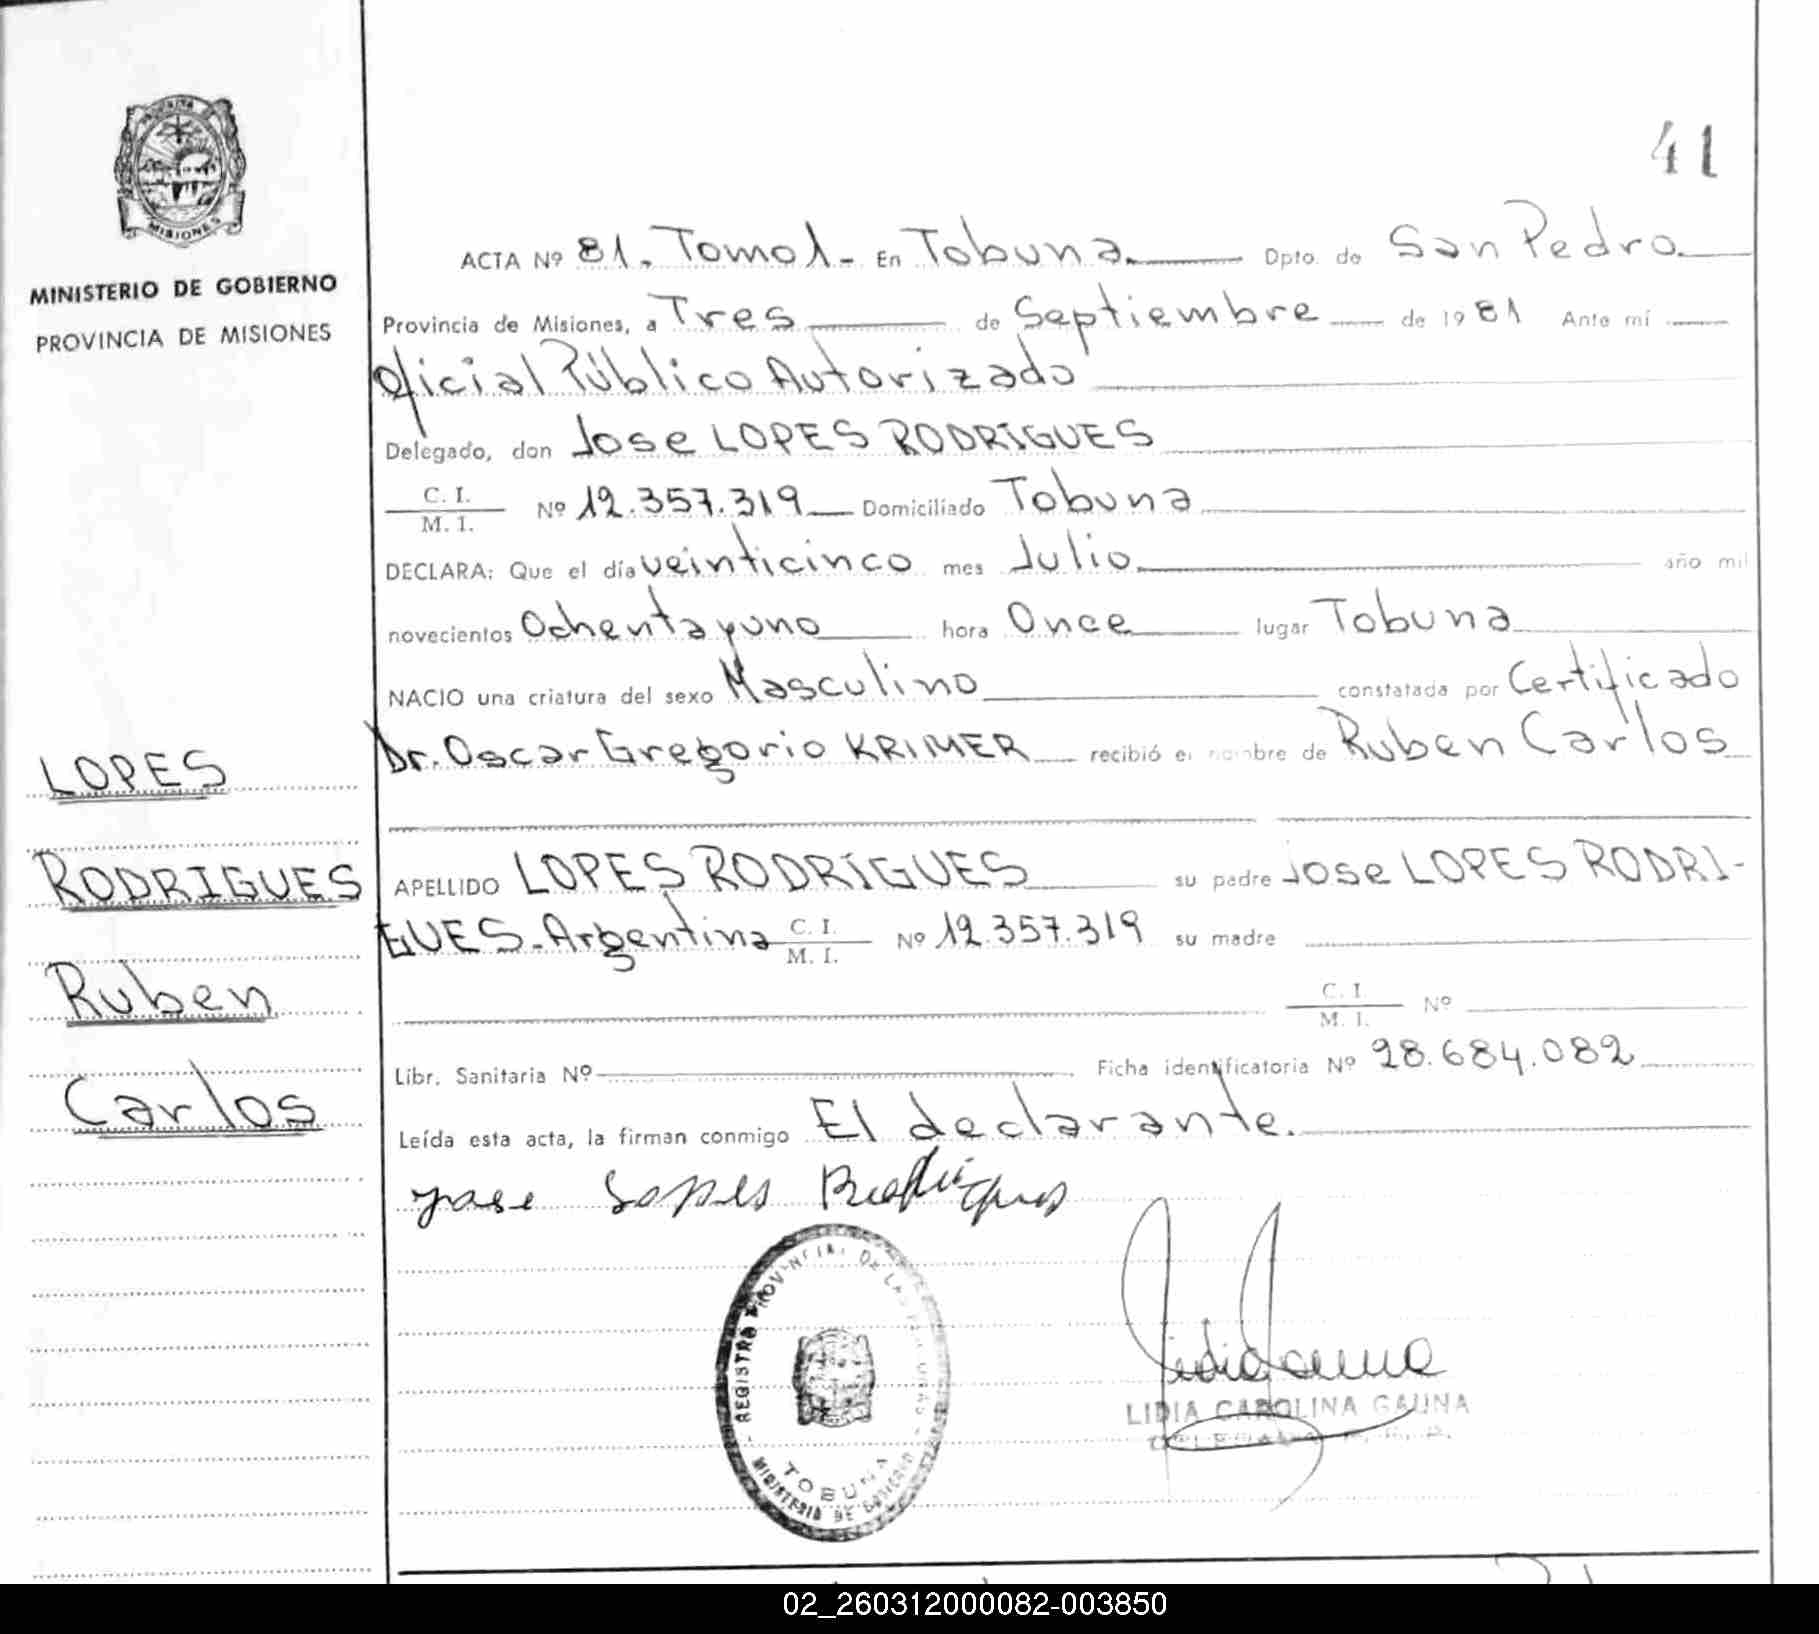 41
MISIONES
MINISTERIO DE GOBIERNO
PROVINCIA DE MISIONES
ACTA Nº 81. Tomo 1. - En Tobuna. Dpto. de San Pedro
Provincia de Misiones, a Tres de Septiembre de 1981 Ante mí
Oficial Público Autorizado
Delegado, don Jose LOPES RODRIGUES
C. I.
M. I.
Nº 12.357.319 Domiciliado Tobuna
DECLARA: Que el día veinticinco mes Julio. año mil
novecientos Ochenta y uno hora Once lugar Tobuna
NACIO una criatura del sexo Masculino constatada por Certificado
Dr. Oscar Gregorio KRIMER recibió el nombre de Ruben Carlos
APELLIDO LOPES RODRIGUES su padre Jose LOPES RODRI-
GUES - Argentina C. I. / M. I. Nº 12.357.319 su madre
C. I.
M. I.
Nº
Libr. Sanitaria Nº Ficha identificatoria Nº 28.684.082
Leída esta acta, la firman conmigo El declarante.
LOPES
RODRIGUES
Ruben
Carlos
Jose Lopes Rodrigues
REGISTRO PROVINCIAL DE LAS
TOBUNA
MINISTERIO DE GOBIERNO
LIDIA CAROLINA GAUNA
02_260312000082-003850